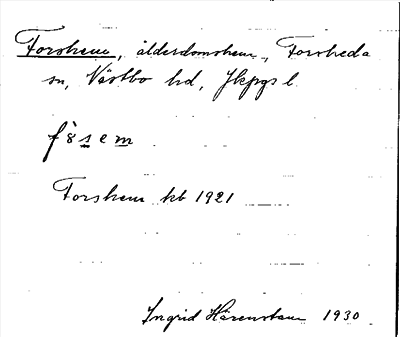 Forshem, ålderdomshem, Forsheda
sn, Västbo hd, Jkpgs l.
fòsem
Forshem kb 1921
Ingrid Härenstam 1930